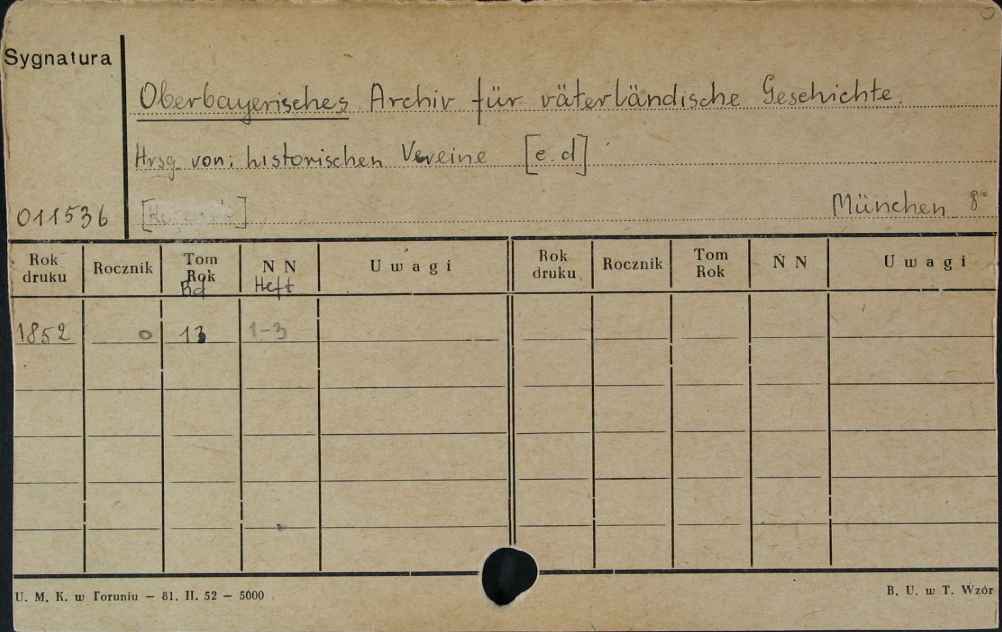 Sygnatura
Oberbayerisches Archiv für väterländische Geschichte.
Hrsg. von: historischen Vereine [e.d]
011536
München 8°
Rok druku Rocznik Tom Rok N N U w a g i Rok druku Rocznik Tom Rok N N U w a g i
Bd Heft
1852 0 13 1-3
U. M. K. w Toruniu — 81. II. 52 — 5000
B. U. w T. Wzór